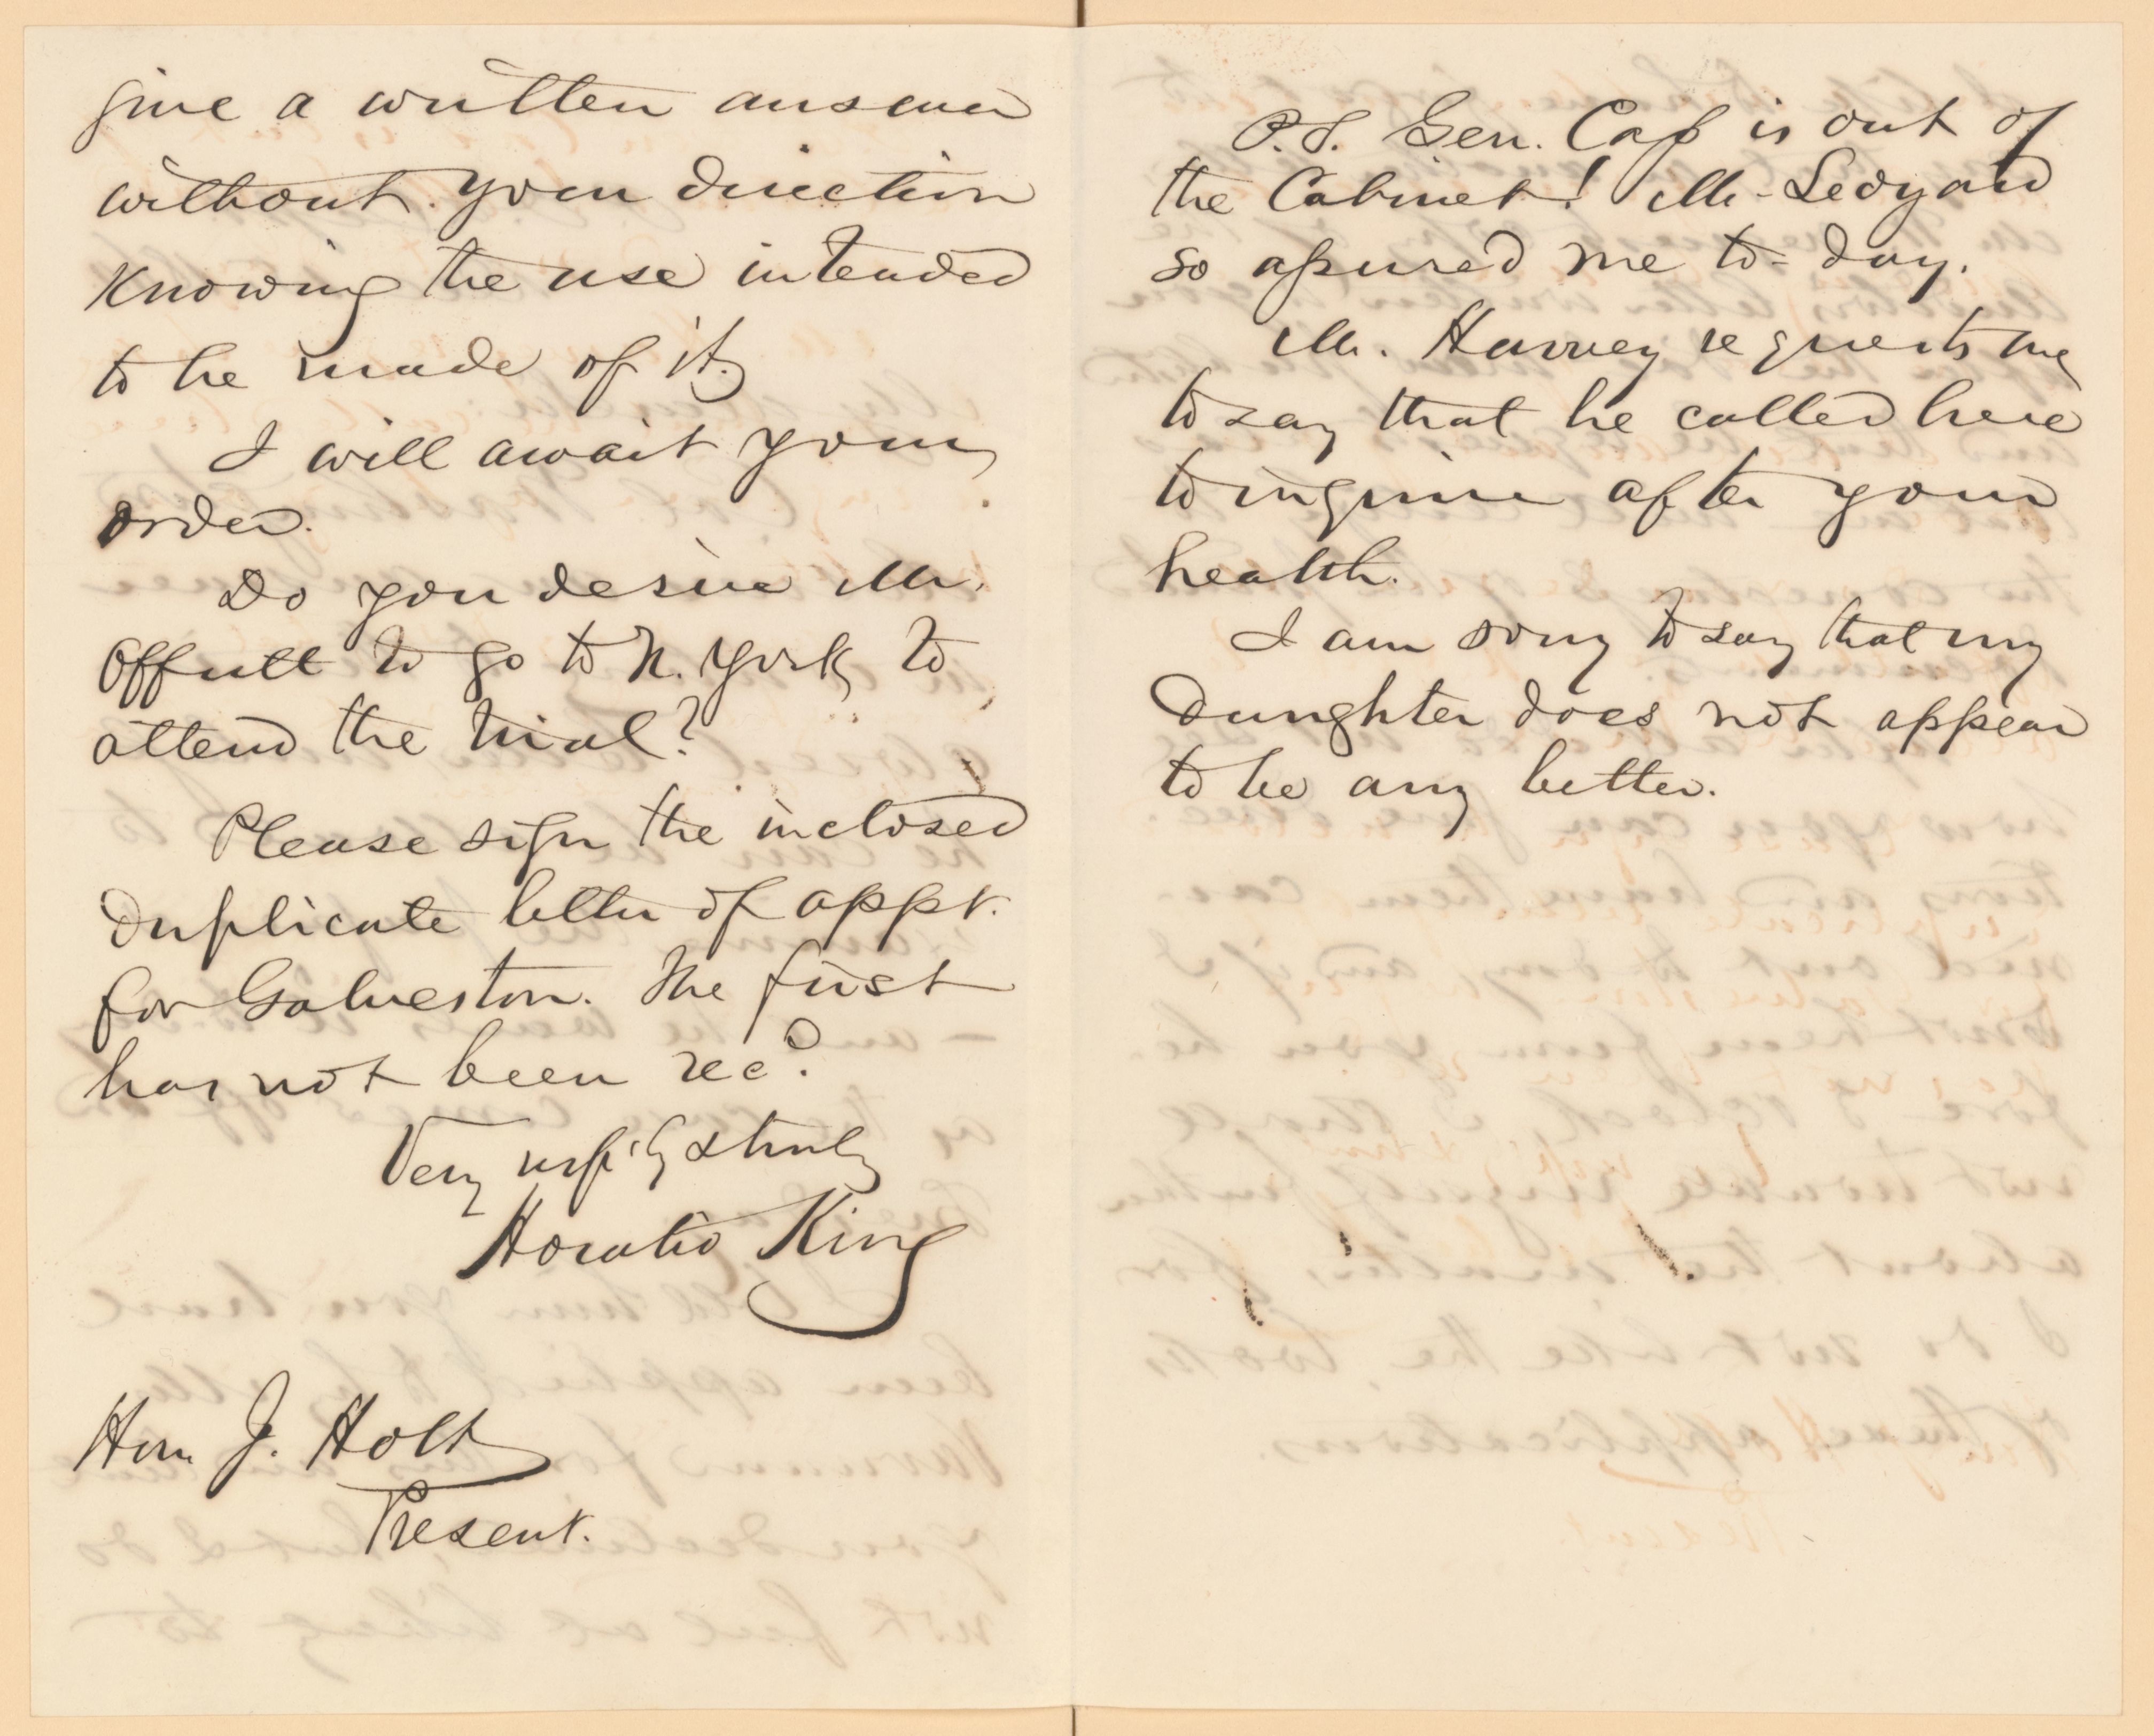 give a written answer
without your direction
Knowing the use intended
to be made of it.
I will await your
order.
Do you desire Mr.
Offutt to go to N. York to
attend the trial?
Please sign the inclosed
duplicate letter of appt.
for Galveston. The first
has not been rec.d
Very respcly & truly
Horatio King
Hon. J. Holt
Present.
P.S. Gen. Cass is out of
the Cabinet! Mr. Ledyard
so assured me to-day.
Mr. Harvey requests me
to say that he called here
to inquire after your
health.
I am sorry to say that my
daughter does not appear
to be any better.